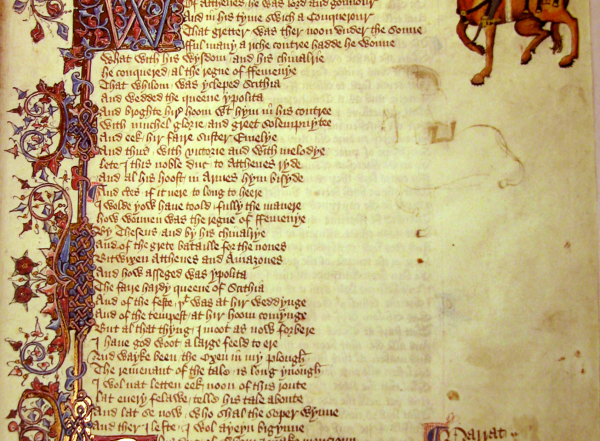 Of Atthenes he was lord and gouernour
And in his tyme swich a Conquerour
That gretter was ther noon vnder the sonne
fful many a riche contree hadde he wonne
What with his wysdom and his chiualrie
he conquered al the regne of ffemenye
That whilom was ycleped Scithia
And wedded the queene ypolita
And broghte hir hoom wt hym in his contree
With muchel glorie and greet solempnytee
And eek hir faire suster Emelye
And thus with victorie and with melodye
lete I this noble duc to Atthenes ryde
And al his hoost in Armes hym bisyde
And certes if it nere to long to heere
I wolde yow haue toold fully the manere
how wonnen was the regne of ffemenye
By Theseus and by his chiualrye
And of the grete bataille for the nones
Bitwixen Atthenes and Amazones
And how asseged was ypolita
The faire hardy queene of Scithia
And of the feste þt was at hir weddynge
And of the tempest at hir hoom comynge
But al that thyng I moot as now forbere
I haue god woot a large feeld to ere
And wayke been the Oxen in my plough
The remenant of the tale is long ynough
I wol nat letten eek noon of this route
lat euery felawe telle his tale aboute
And lat se now who shal the soper wynne
And ther I lefte I wol ayeyn bigynne
Narrat